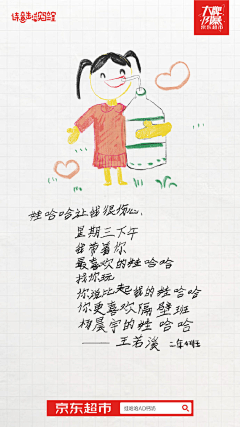 京东超市
娃哈哈让我很伤心
星期三下午
我带着你
最喜欢的娃哈哈
找你玩
你说比起我的娃哈哈
你更喜欢隔壁班
杨晨宇的娃哈哈
——王若溪 二年4班
京东超市
娃哈哈AD钙奶